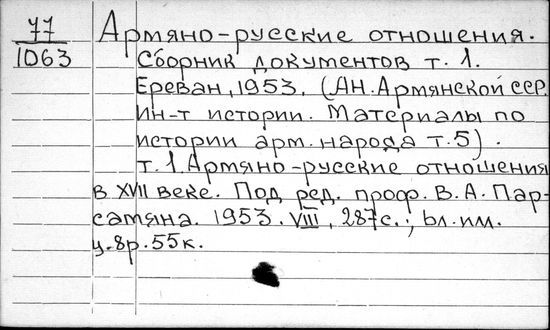 77
1063
Армяно-русские отношения.
Сборник документов т. 1.
Ереван, 1953. (АН. Армянской ССР.
Ин-т истории. Материалы по
истории арм. народа т.5).
т. 1. Армяно-русские отношения
в XVII веке. Под ред. проф. В. А. Пар-
самяна. 1953. VIII, 287с.; вл. им.
ц. 8р. 55к.